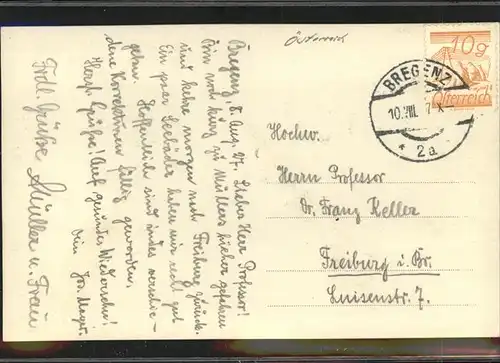 Österreich
10g
Österreich
BREGENZ
10.VIII. 27
* 2a
Hochw.
Herrn Professor
Dr. Franz Keller
Freiburg i. Br.
Luisenstr. 7.
Bregenz, 8. Aug. 27. Lieber Herr Professor!
Bin noch kurz zu Müllers hieher gefahren
und kehre morgen nach Freiburg zurück.
Ein paar Seebäder haben mir recht gut
getan. Hoffentlich sind indes verschie-
dene Korrekturen fällig geworden.
Herzl. Grüße! Auf gesundes Wiedersehn!
Dein Jos. Mayer.
Frdl. Grüße Müller u. Frau